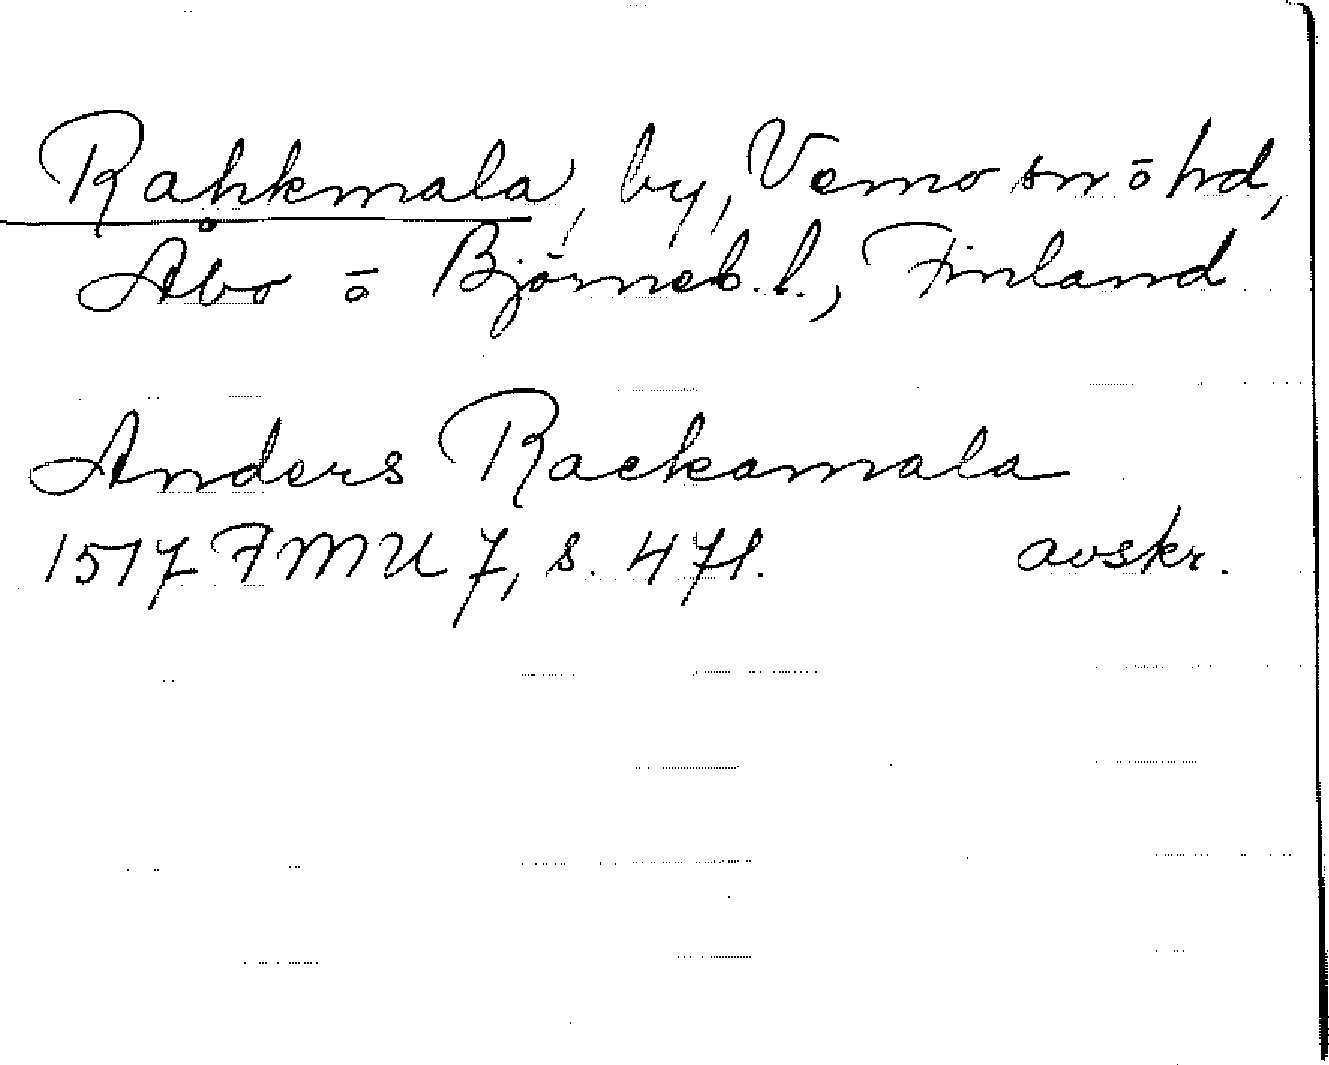 Rahkmala, by, Vemo sn ō hd,
Åbo ō Björneb. l., Finland
Anders Rackamala
1517 FMU 7, s. 471. avskr.